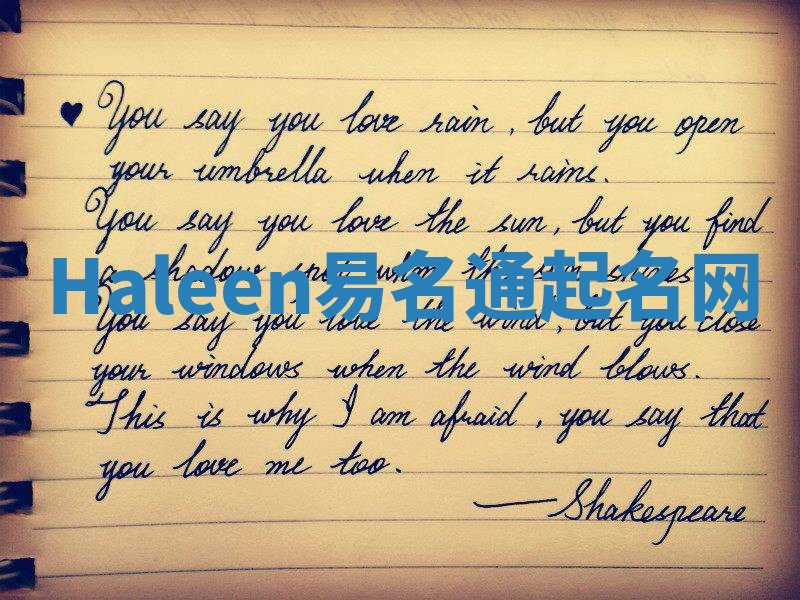 ♥ You say you love rain, but you open
your umbrella when it rains.
You say you love the sun, but you find
a shadow spot when the sun shines
Haleen易名通起名网
You say you love the wind, but you close
your windows when the wind blows.
This is why I am afraid, you say that
you love me too.
—Shakespeare